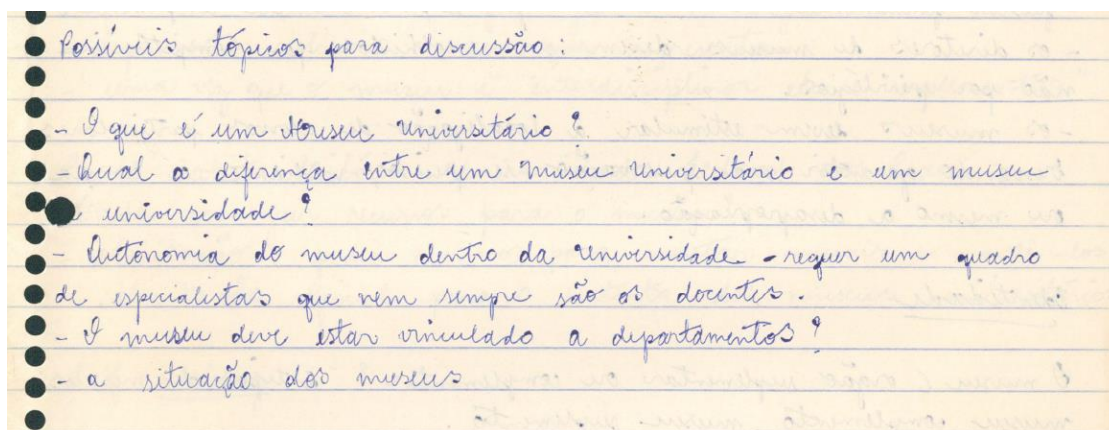 Possíveis tópicos para discussão:
- O que é um Museu Universitário?
- Qual a diferença entre um museu Universitário e um museu
universidade?
- Autonomia do museu dentro da Universidade - requer um quadro
de especialistas que nem sempre são os docentes.
- O museu deve estar vinculado a departamentos?
- a situação dos museus